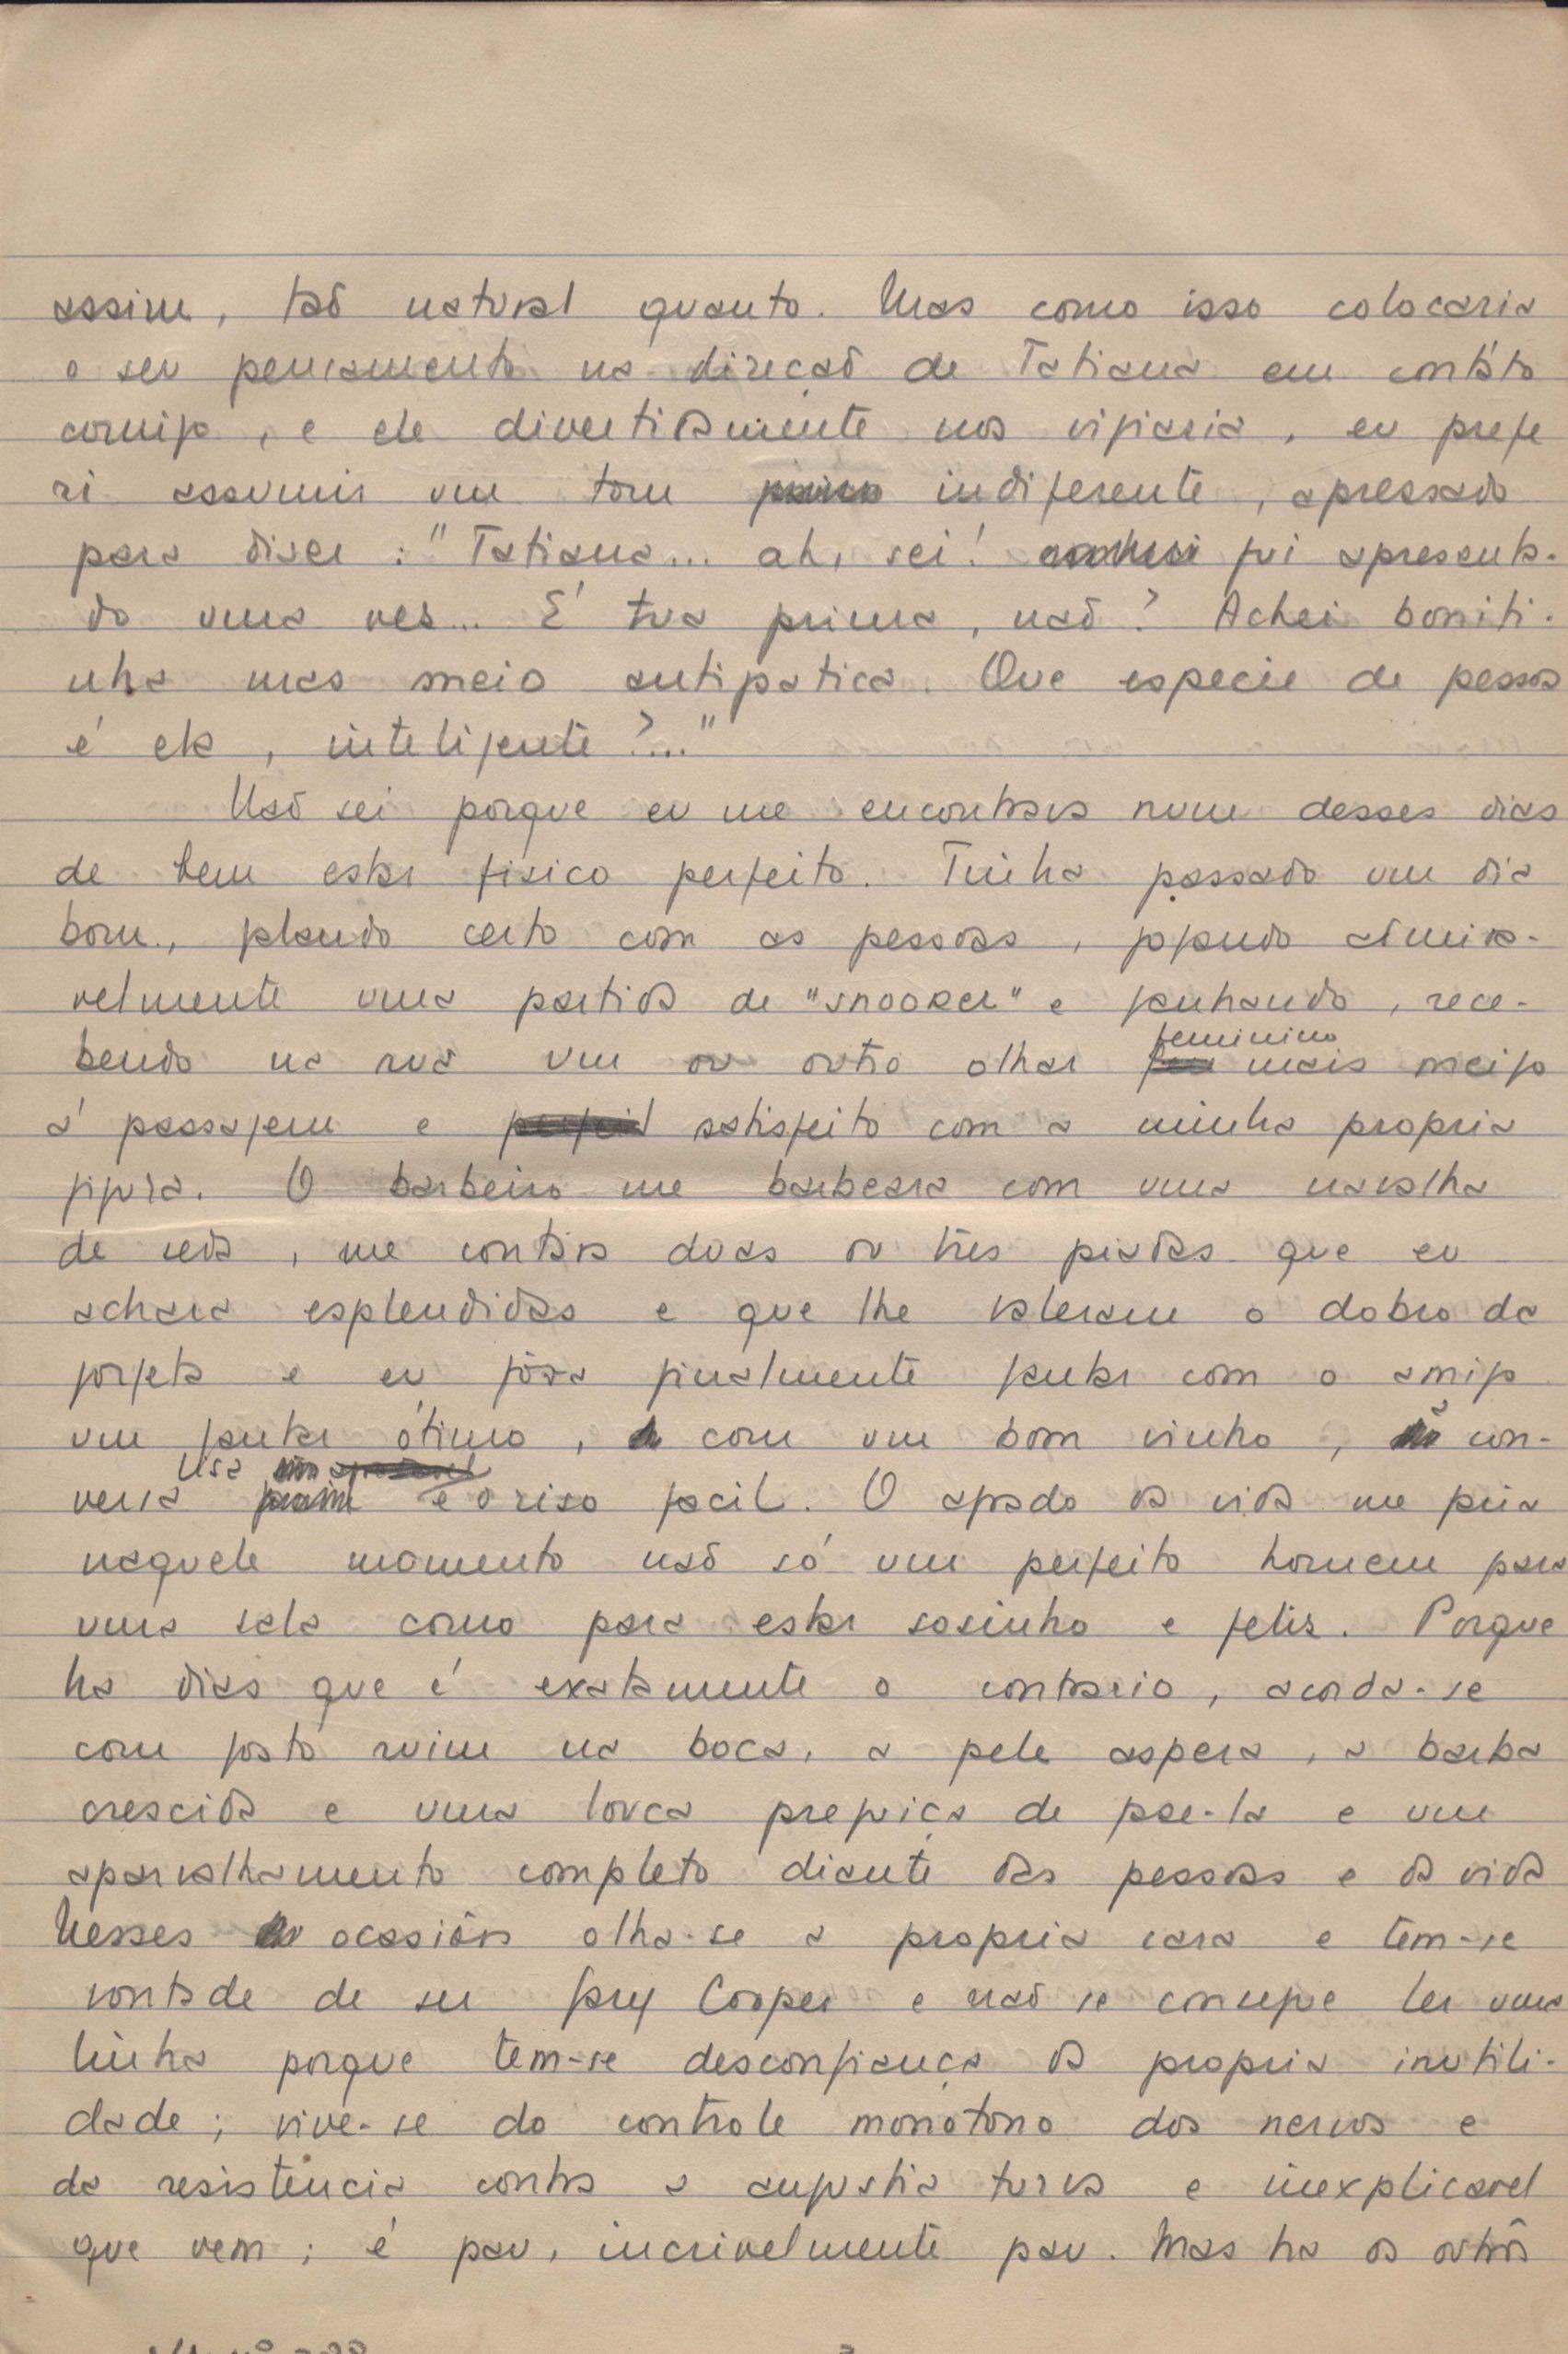 assim, taõ natural quanto. Mas como isso colocaria
o seu pensamento na direçaõ de Tatiana em contáto
comigo, e ele divertidamente nos vigiaria, eu prefe
ri assumir um tom indiferente, apressado
para diser: "Tatiana... ah, sei! fui apresenta-
do uma ves... É tua prima, naõ? Achei boniti-
nha mas meio antipatica. Que especie de pessoa
é ela, inteligente?..."
Naõ sei porque eu me encontrava num desses dias
de bem estar fisico perfeito. Tinha passado um dia
bom, falando certo com as pessoas, jogando admira-
velmente uma partida de "snooker" e ganhando, rece-
bendo na rua um ou outro olhar feminino mais meigo
á passagem e satisfeito com a minha propria
figura. O barbeiro me barbeara com uma navalha
de seda, me contara duas ou três piadas que eu
achara esplendidas e que lhe valeram o dobro da
gorjeta e eu fôra finalmente jantar com o amigo
um jantar ótimo, com um bom vinho, con-
versa lisa e o riso facil. O agrado da vida me fazia
naquele momento naõ só um perfeito homem para
uma sala como para estar sosinho e felis. Porque
ha dias que é exatamente o contrario, acorda-se
com gosto ruim na boca, a pele aspera, a barba
crescida e uma louca preguiça de faze-la e um
aparvalhamento completo diante das pessoas e da vida
Nesses ocasiões olha-se a propria cara e tem-se
vontade de ser Gary Cooper e naõ se consegue ler uma
linha porque tem-se desconfiança da propria inutili-
dade; vive-se do controle monotono dos nervos e
da resistencia contra a angustia turva e inexplicavel
que vem; é pau, incrivelmente pau. Mas ha os outros